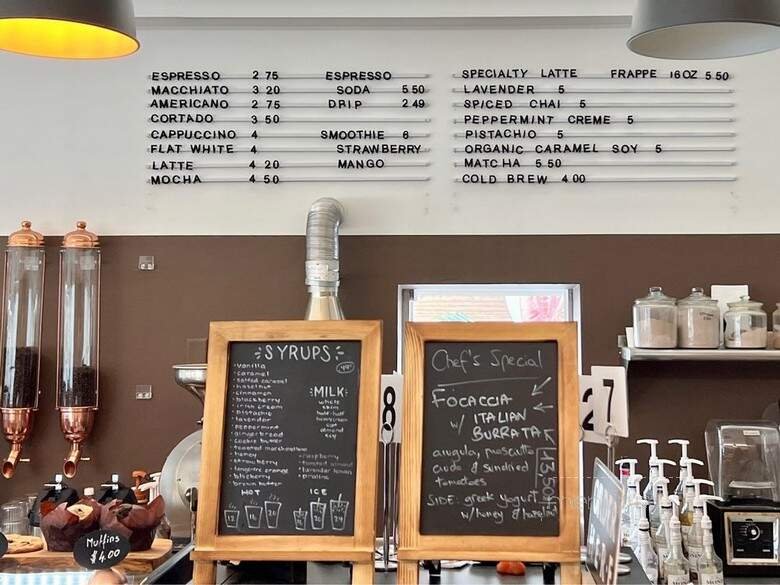 ESPRESSO 2 75
MACCHIATO 3 20
AMERICANO 2 75
CORTADO 3 50
CAPPUCCINO 4
FLAT WHITE 4
LATTE 4 20
MOCHA 4 50
ESPRESSO
SODA 5 50
DRIP 2 49
SMOOTHIE 6
STRAWBERRY
MANGO
SPECIALTY LATTE FRAPPE 16OZ 5 50
LAVENDER 5
SPICED CHAI 5
PEPPERMINT CREME 5
PISTACHIO 5
ORGANIC CARAMEL SOY 5
MATCHA 5 50
COLD BREW 4 00
SYRUPS
vanilla
caramel
salted caramel
hazelnut
cinnamon
blackberry
irish cream
pistachio
lavender
peppermint
gingerbread
cookie butter
toasted marshmallow
honey
strawberry
tangerine orange
blueberry
coconut
MILK
whole
skim
half-half
oat
almond
soy
raspberry
toasted almond
praline
HOT ICE
12 16 20 16 20 24
Chef's Special
FOCACCIA
W/ ITALIAN
BURRATA
arugula, prosciutto
crudo & sundried
tomatoes
13.50
SIDE: greek yogurt
w/honey & hazelnut
8
27
Muffins
$4.00